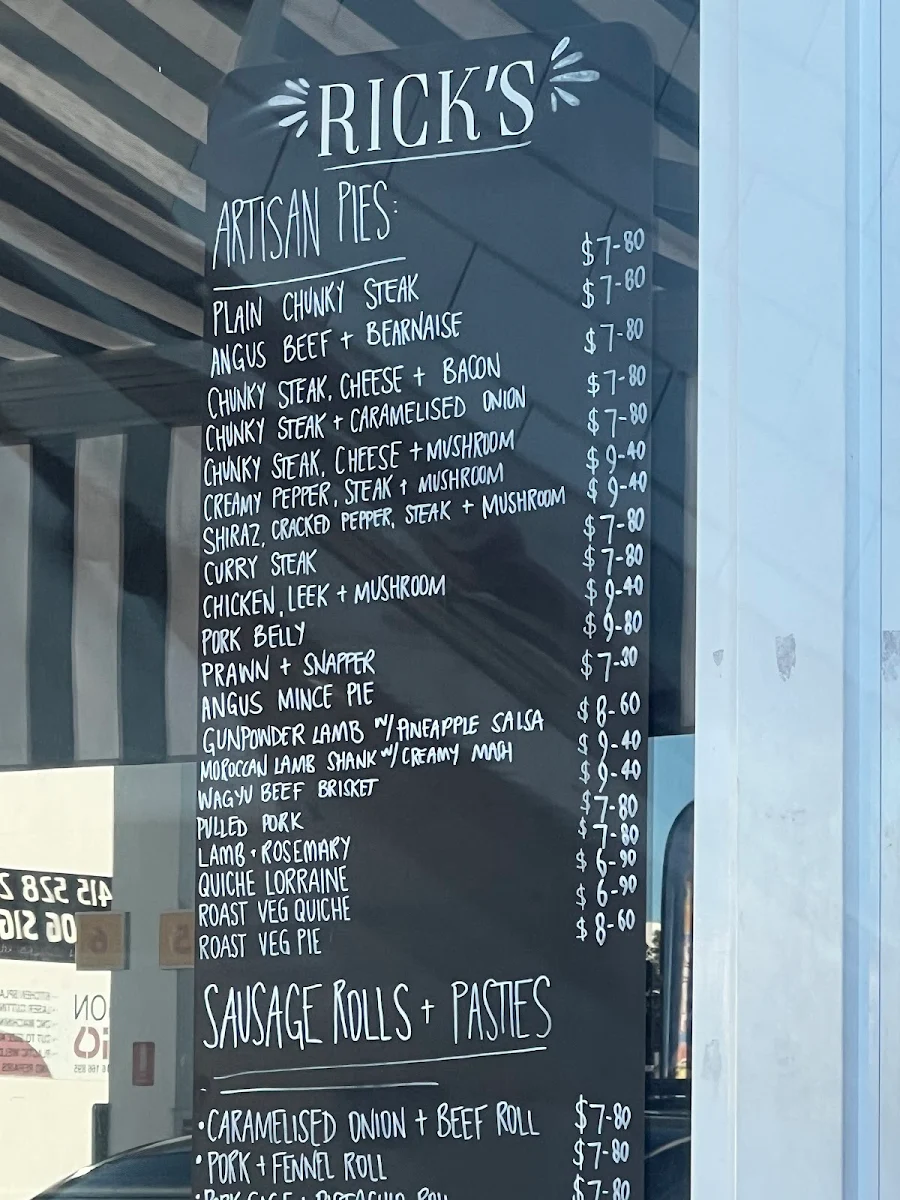 RICK'S
ARTISAN PIES:
PLAIN CHUNKY STEAK $7-80
ANGUS BEEF + BEARNAISE $7-80
CHUNKY STEAK, CHEESE + BACON $7-80
CHUNKY STEAK + CARAMELISED ONION $7-80
CHUNKY STEAK, CHEESE + MUSHROOM $7-80
CREAMY PEPPER, STEAK + MUSHROOM $9-40
SHIRAZ, CRACKED PEPPER, STEAK + MUSHROOM $9-40
CURRY STEAK $7-80
CHICKEN, LEEK + MUSHROOM $7-80
PORK BELLY $9-40
PRAWN + SNAPPER $9-80
ANGUS MINCE PIE $7-30
GUNPOWDER LAMB W/ PINEAPPLE SALSA $8-60
MOROCCAN LAMB SHANK W/ CREAMY MASH $9-40
WAGYU BEEF BRISKET $9-40
PULLED PORK $7-80
LAMB + ROSEMARY $7-80
QUICHE LORRAINE $6-90
ROAST VEG QUICHE $6-90
ROAST VEG PIE $8-60
SAUSAGE ROLLS + PASTIES
• CARAMELISED ONION + BEEF ROLL $7-80
• PORK + FENNEL ROLL $7-80
$7-80
415 528 2
06 SIG